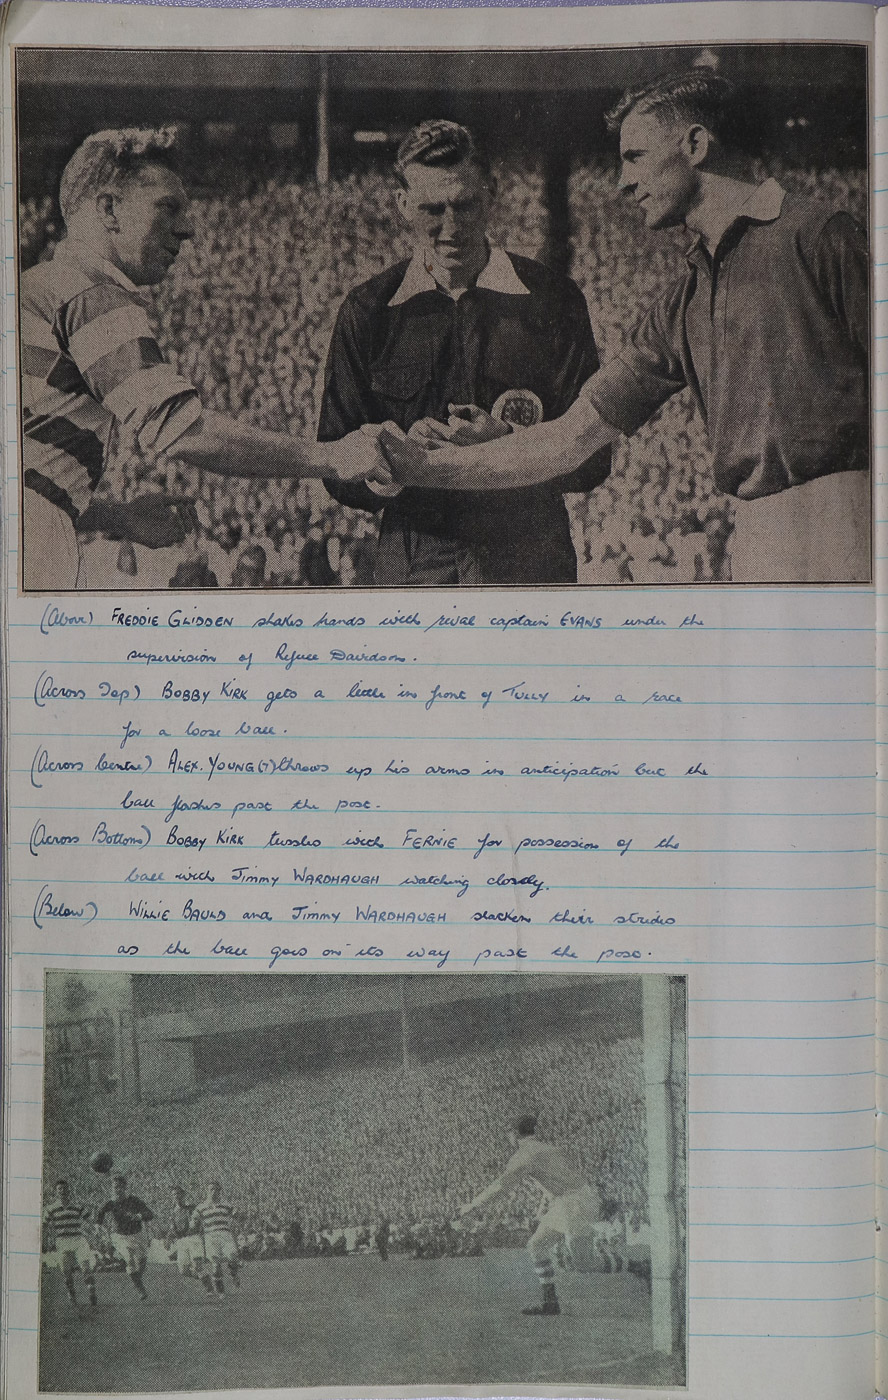 (Above) FREDDIE GLIDDEN shakes hands with rival captain EVANS under the
supervision of Referee Davidson.
(Across Top) BOBBY KIRK gets a little in front of TULLY in a race
for a loose ball.
(Across Centre) ALEX. YOUNG (7) throws up his arms in anticipation but the
ball flashes past the post.
(Across Bottom) BOBBY KIRK tussles with FERNIE for possession of the
ball with Jimmy WARDHAUGH watching closely.
(Below) WILLIE BAULD and Jimmy WARDHAUGH slacken their strides
as the ball goes on its way past the post.